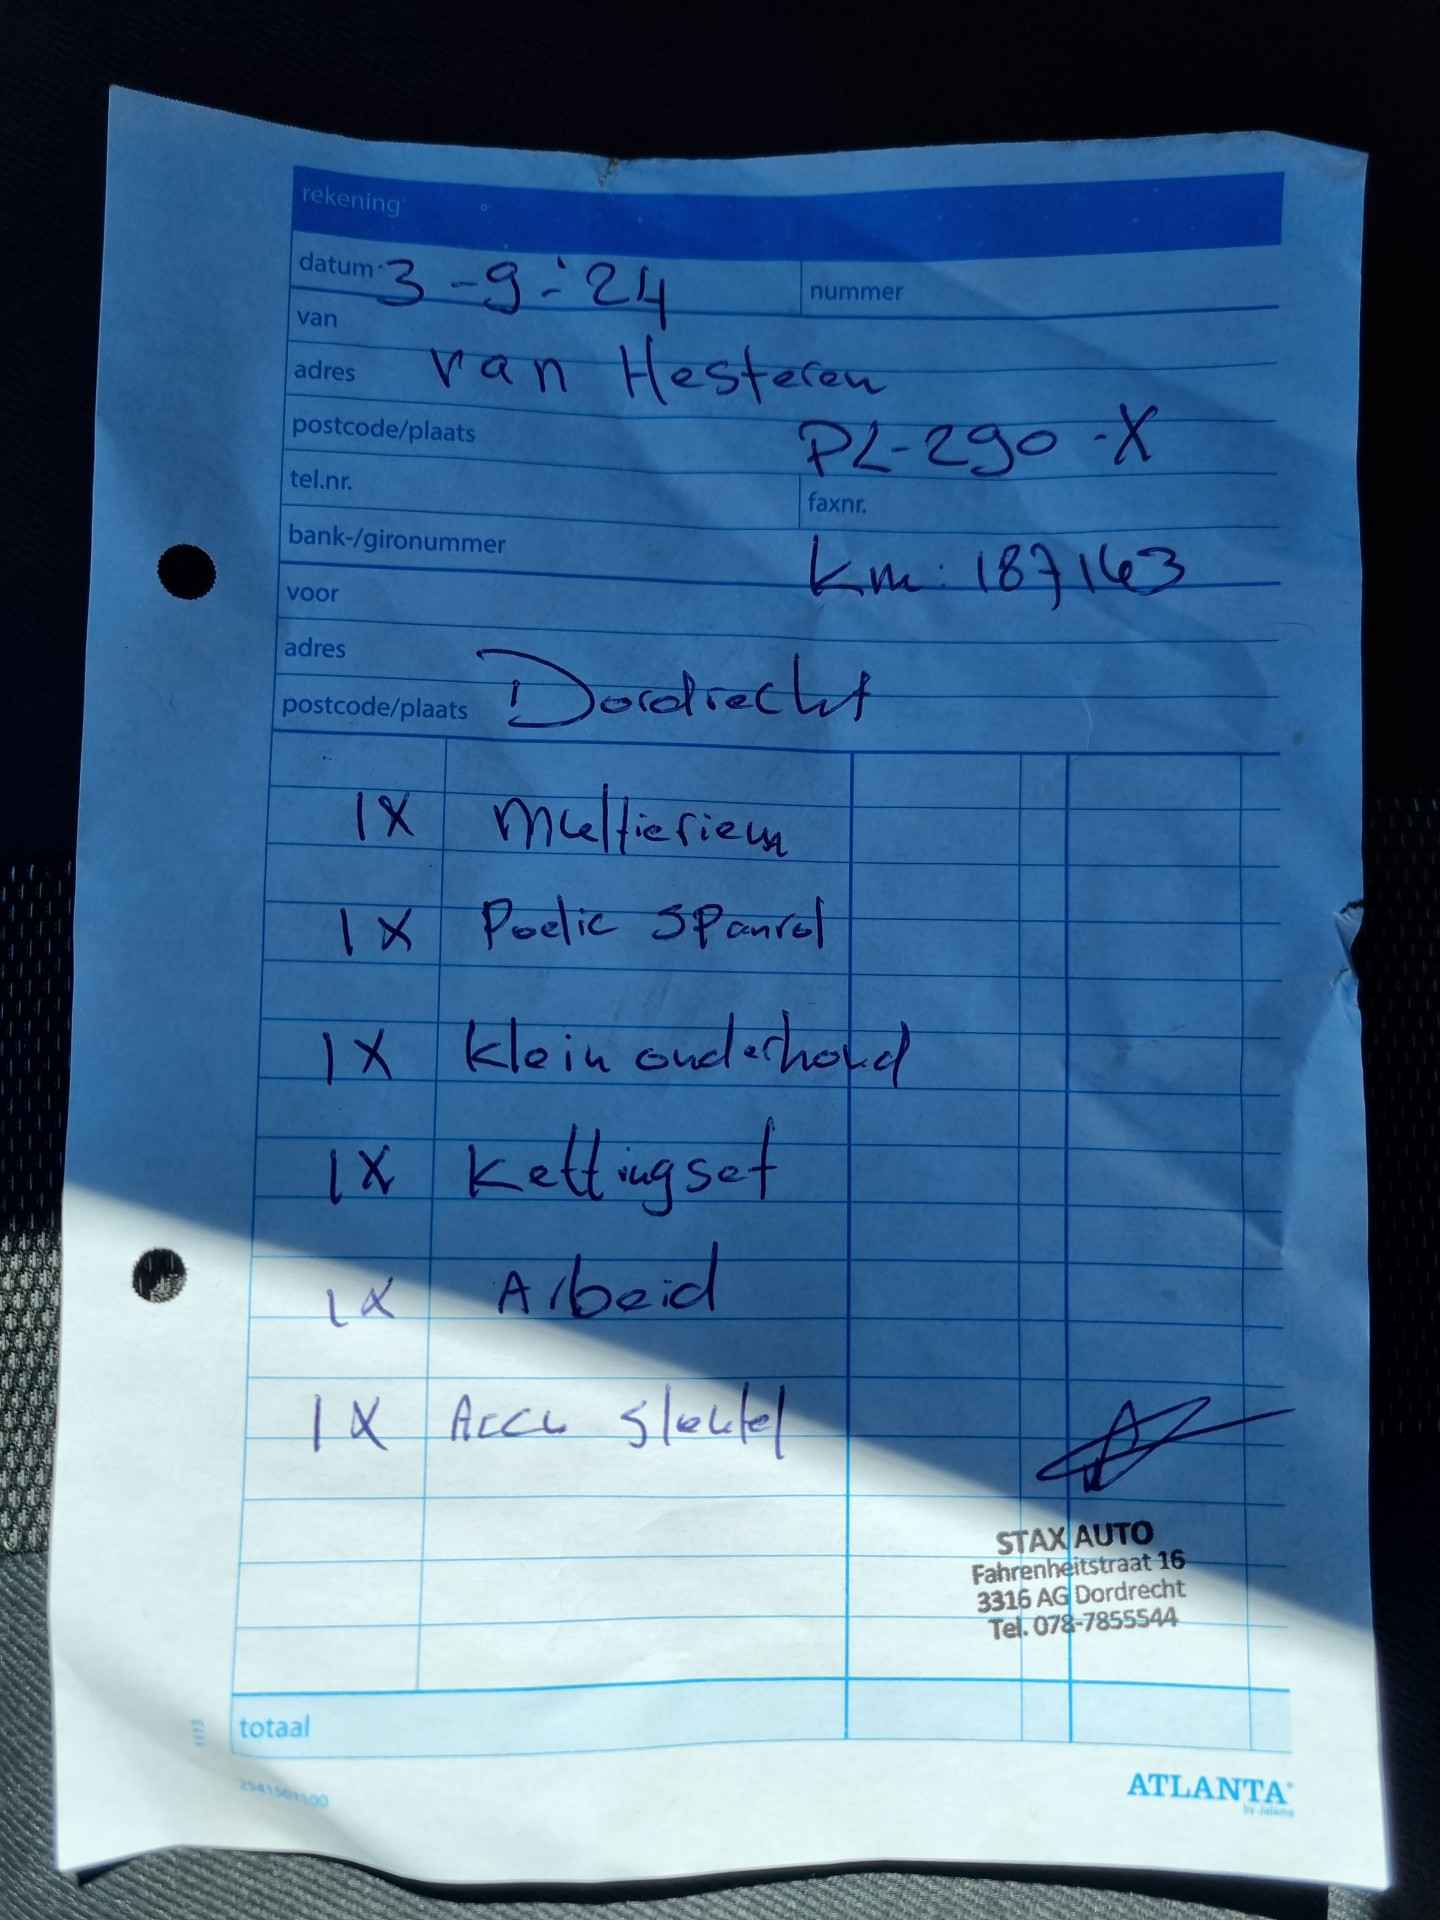 rekening
datum 3-9-'24
nummer
van
adres van Hesteren
postcode/plaats PL-290-X
tel.nr.
faxnr.
bank-/gironummer km: 187163
voor
adres
postcode/plaats Dordrecht
1X Multieriem
1X Poelie Spanrol
1X Klein onderhoud
1X Kettingset
1X Arbeid
1X Accu sleutel
STAX AUTO
Fahrenheitstraat 16
3316 AG Dordrecht
Tel. 078-7855544
totaal
ATLANTA
by Jalema